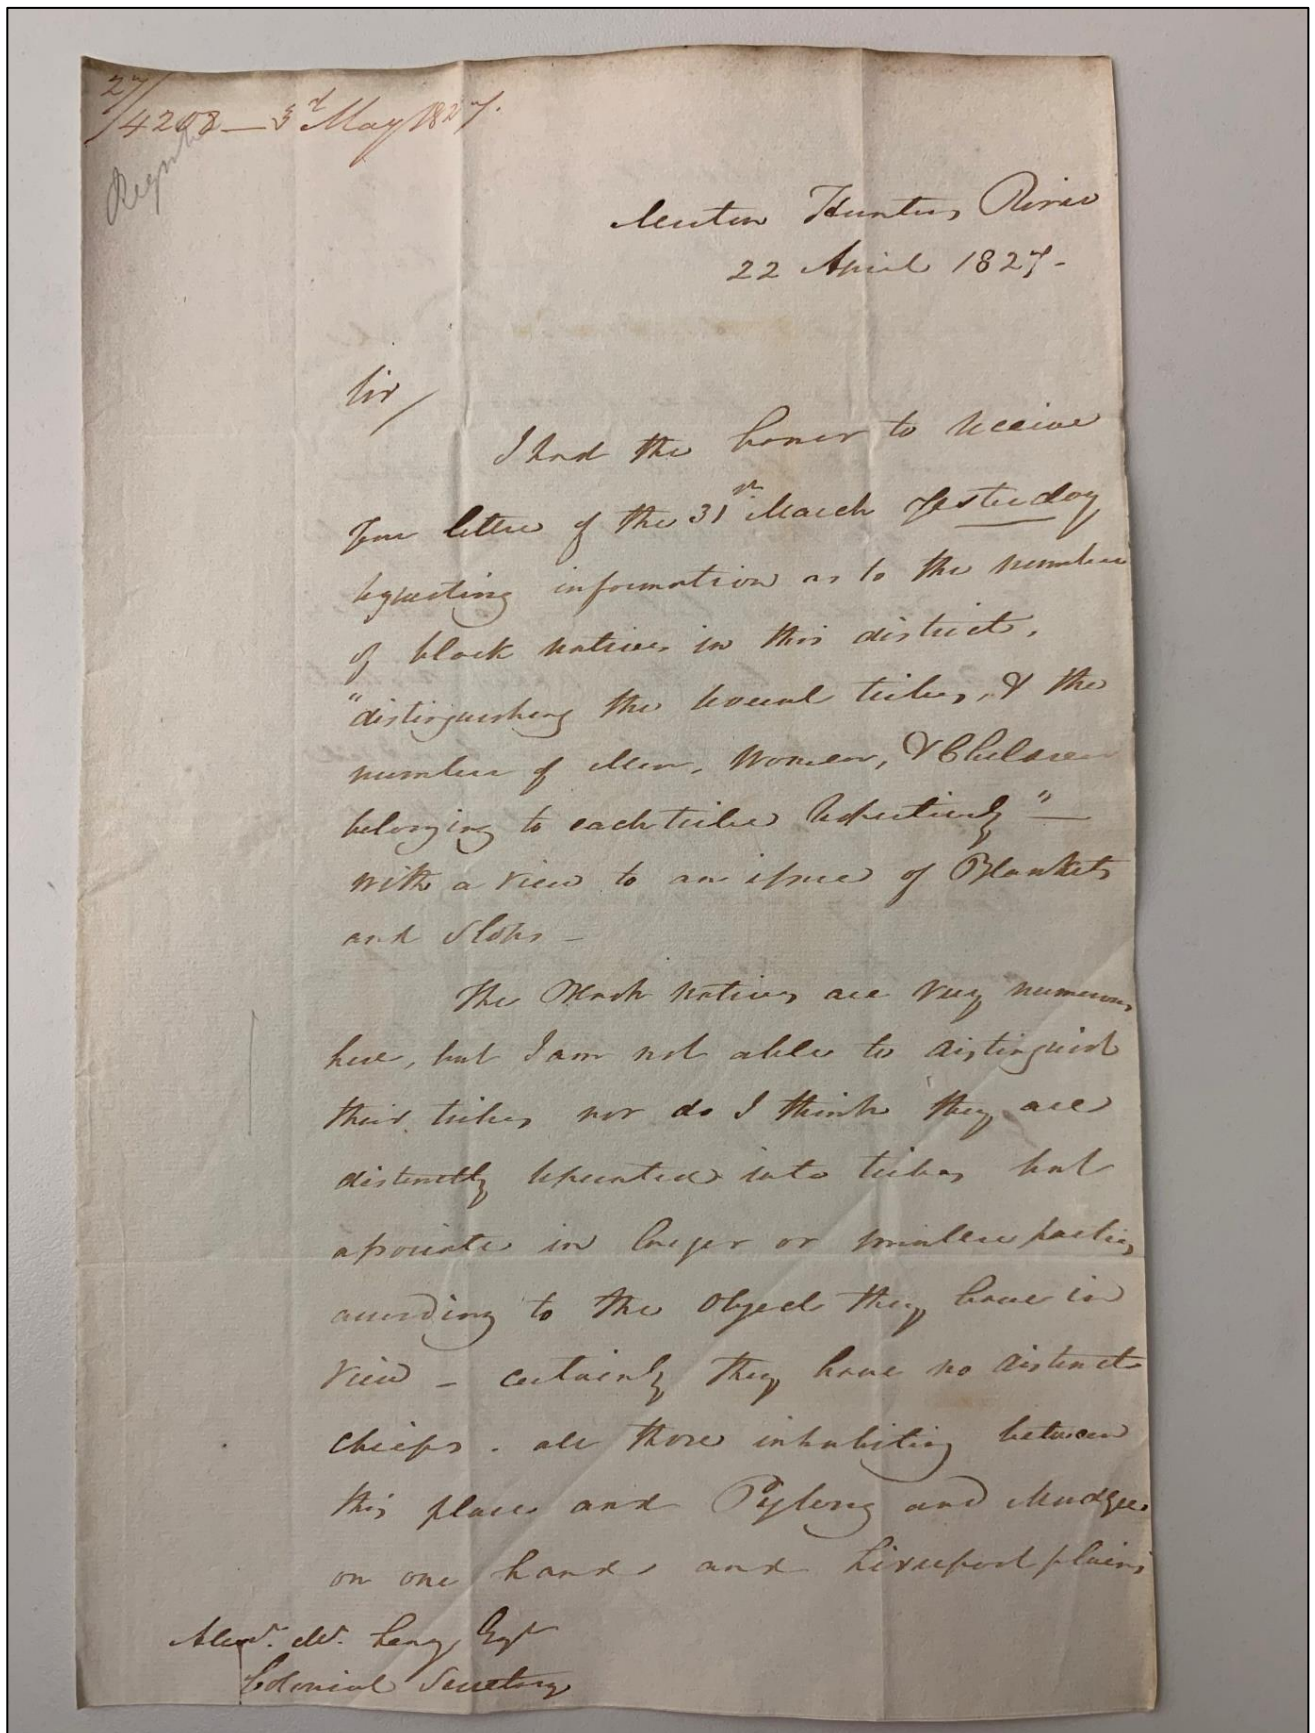 27/4208 — 3d May 1827.
Hunters River
22 April 1827 -
Sir/
I had the honor to receive
your letter of the 31st March Yesterday
requesting information as to the number
of black natives in this district,
"distinguishing the several tribes, & the
number of Men, Women, & Children
belonging to each tribe respectively" —
with a view to an issue of Blankets
and Slops -
The Black natives are very numerous
here, but I am not able to distinguish
their tribes nor do I think they are
distinctly separated into tribes but
associate in larger or smaller parties
according to the object they have in
view - certainly they have no distinct
chiefs. all those inhabiting between
this place and Bylong and Mudgee
on one hand and Liverpool plains
Alexr. Mc. Leay Esqr
Colonial Secretary